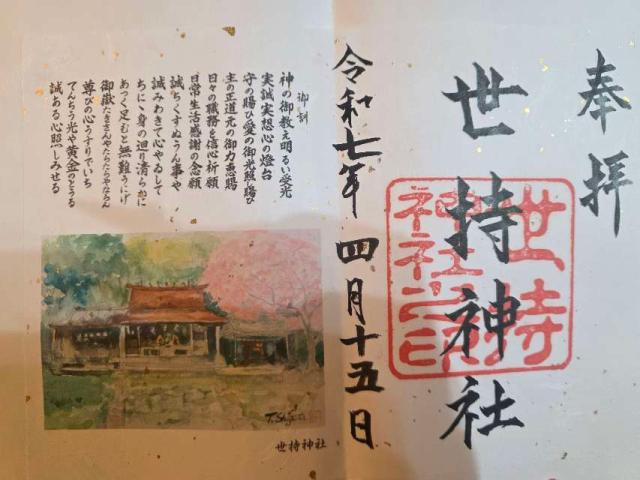 奉拝
世持神社
世持
神社之印
令和七年 四月十五日
御訓
神の御教え明るい受光
実誠実想心の燈台
守の賜ひ愛の御光照り賜ひ
主の正道元の御力恵賜
日々の職務を信心祈願
日常生活感謝の念願
誠ちくすぬうん事や
誠みわきて心やゐして
ちに、身の廻り清らかに
あつく足むと無難うにげ
御嶽たきさんやたらたらやならん
尊びの心うすりでいち
てんちう光や黄金のとうる
誠ある心照つしみせる
世持神社